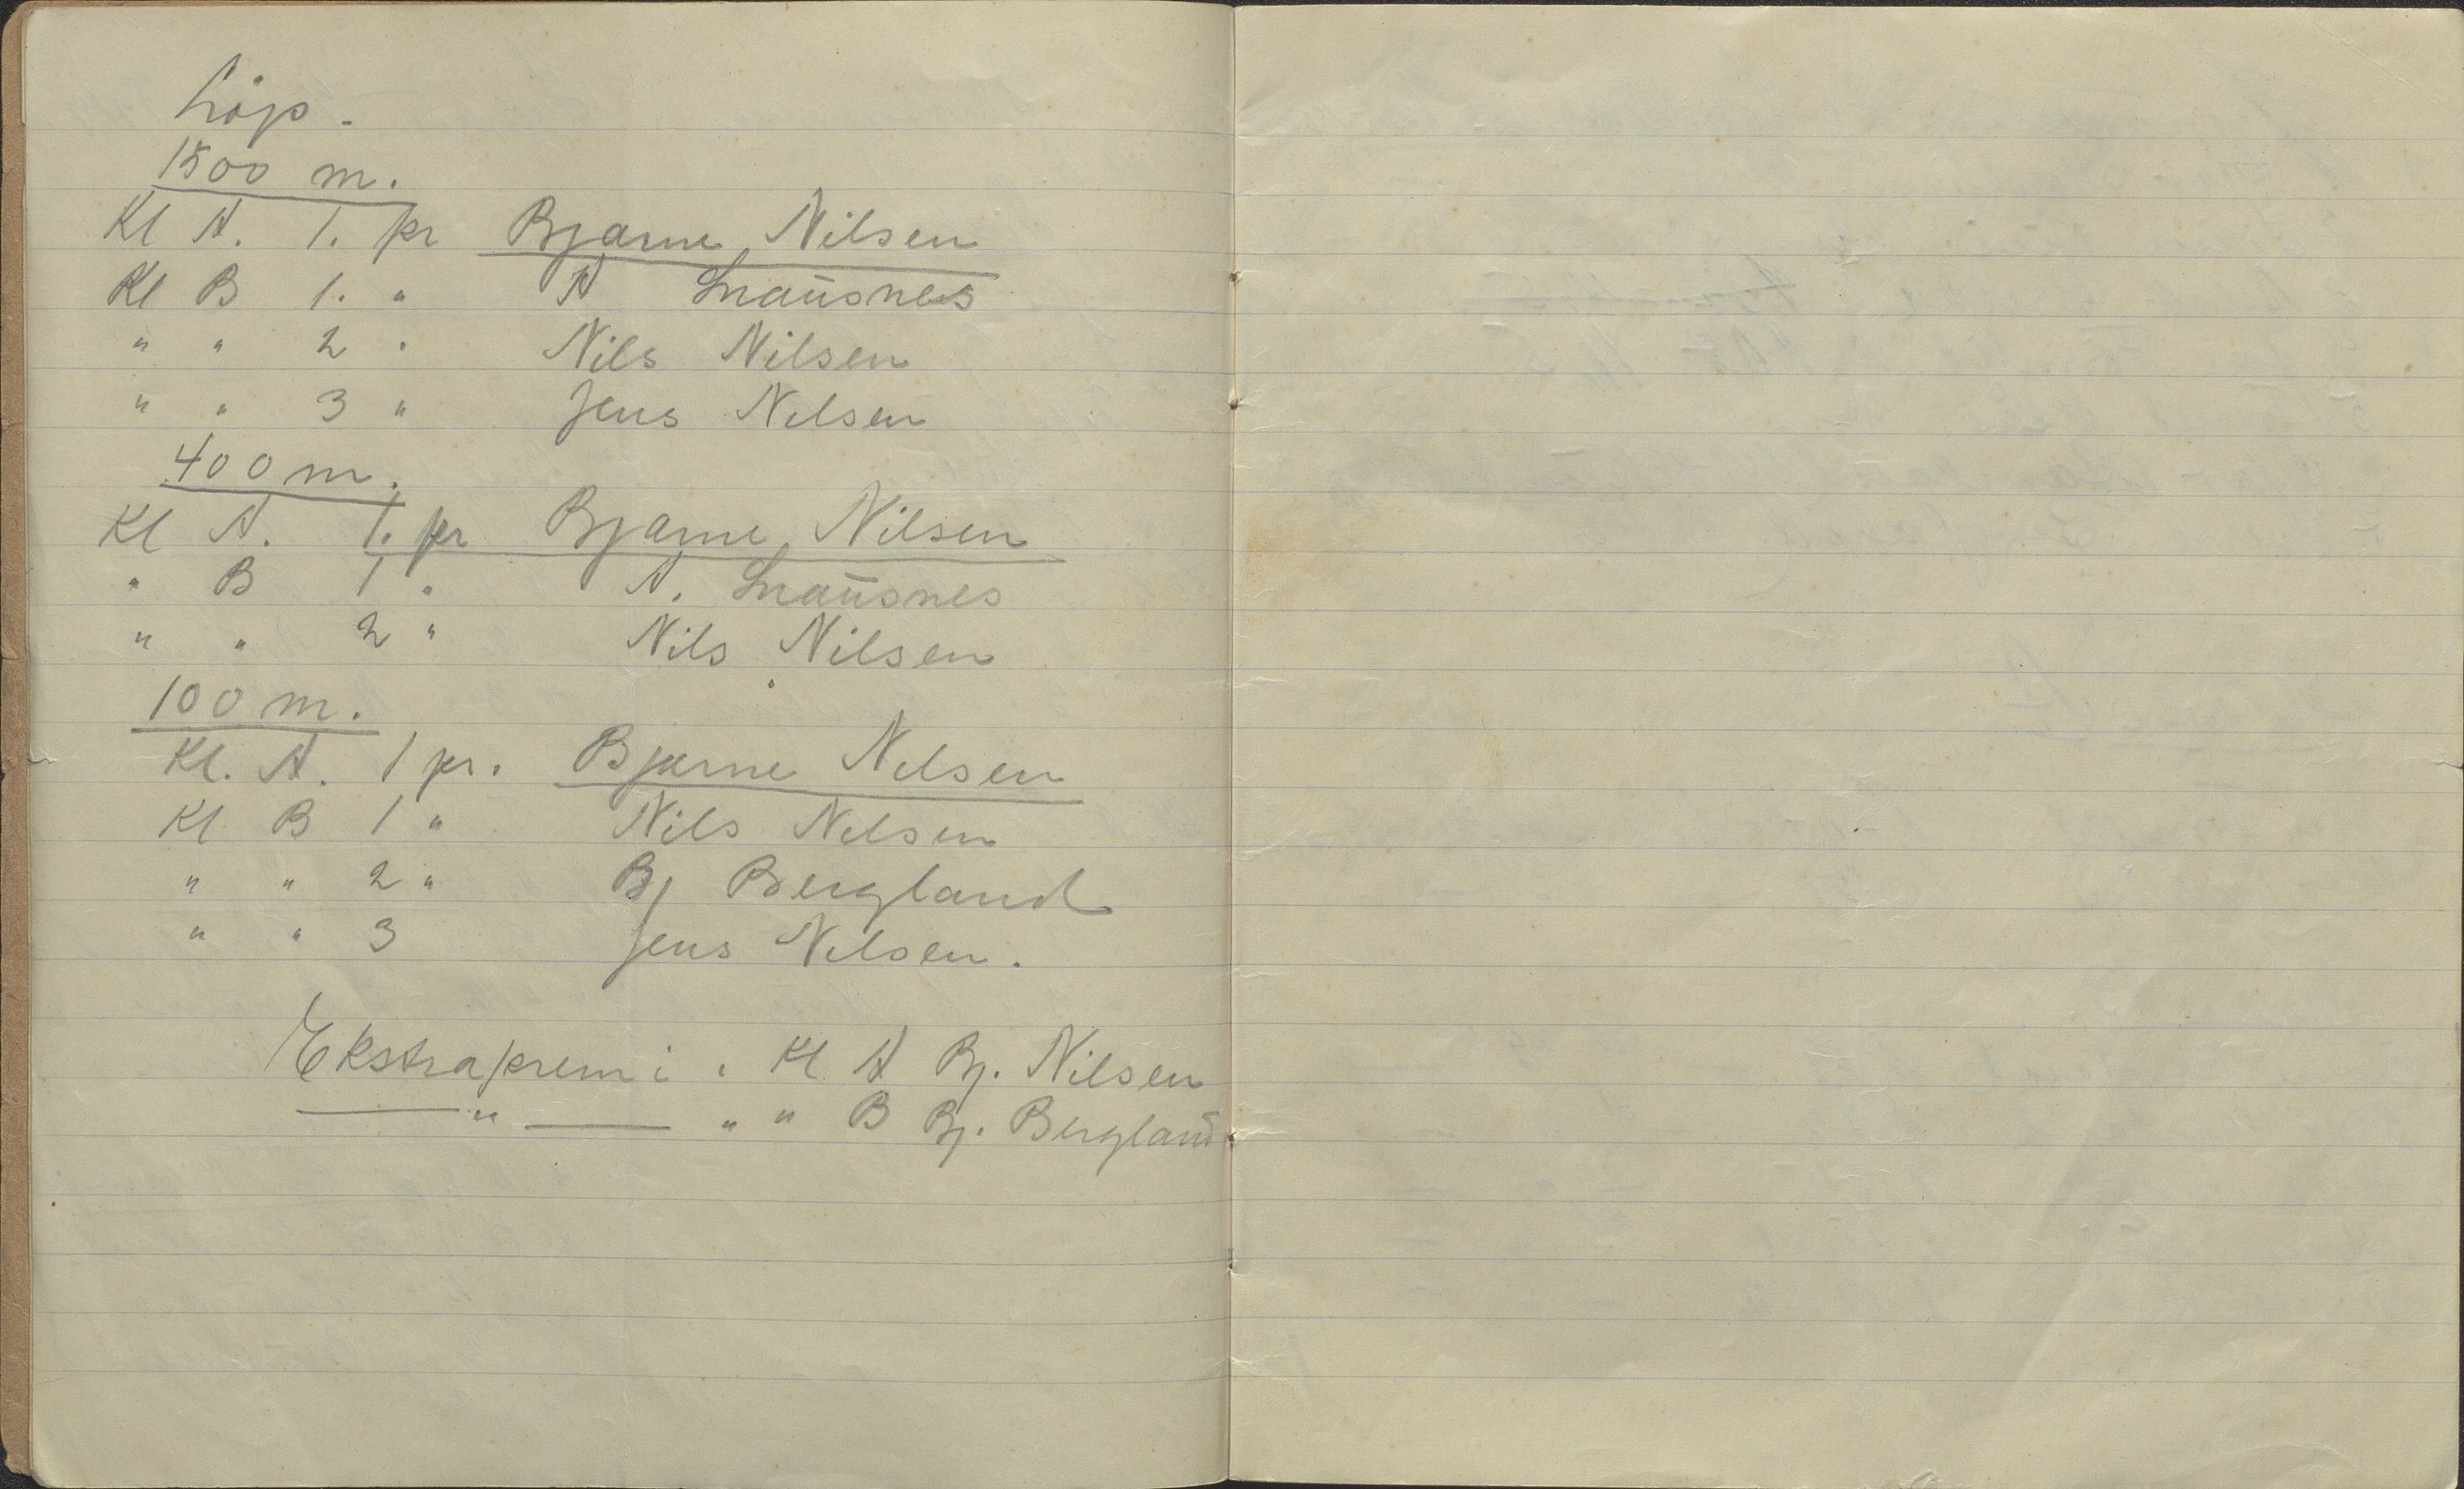 Löp.
1500 m.
Kl A. 1. pr Bjarne Nilsen
Kl B 1. " A Snausnes
" " 2 " Nils Nilsen
" " 3 " Jens Nilsen
400 m.
Kl A. 1. pr Bjarne Nilsen
" B 1 " A. Snausnes
" " 2 " Nils Nilsen
100 m.
Kl. A. 1 pr. Bjarne Nilsen
Kl B 1 " Nils Nilsen
" " 2 " Bj Bergland
" " 3 Jens Nilsen.
Ekstrapremi i Kl A Bj. Nilsen
—— " —— " " B Bj. Bergland